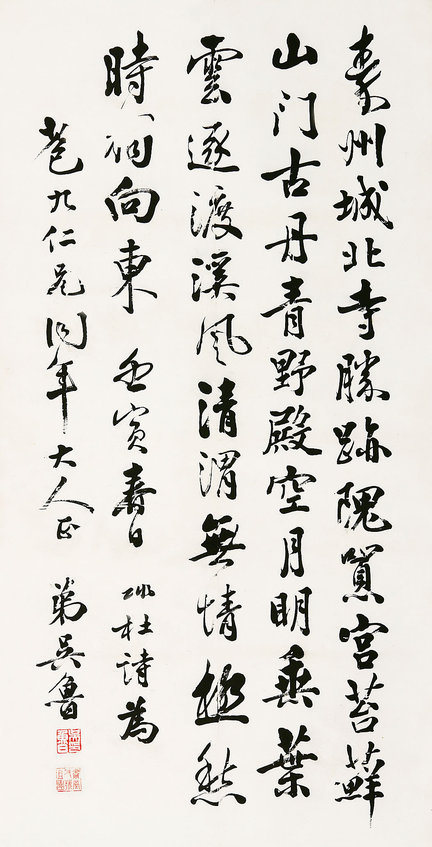 秦州城北寺勝跡隗囂宮苔蘚
山门古丹青野殿空月明垂葉
雲逐渡溪风清渭無情極愁
時獨向東 壬寅春日 杜詩為
九仁兄同年大人正 弟吳魯